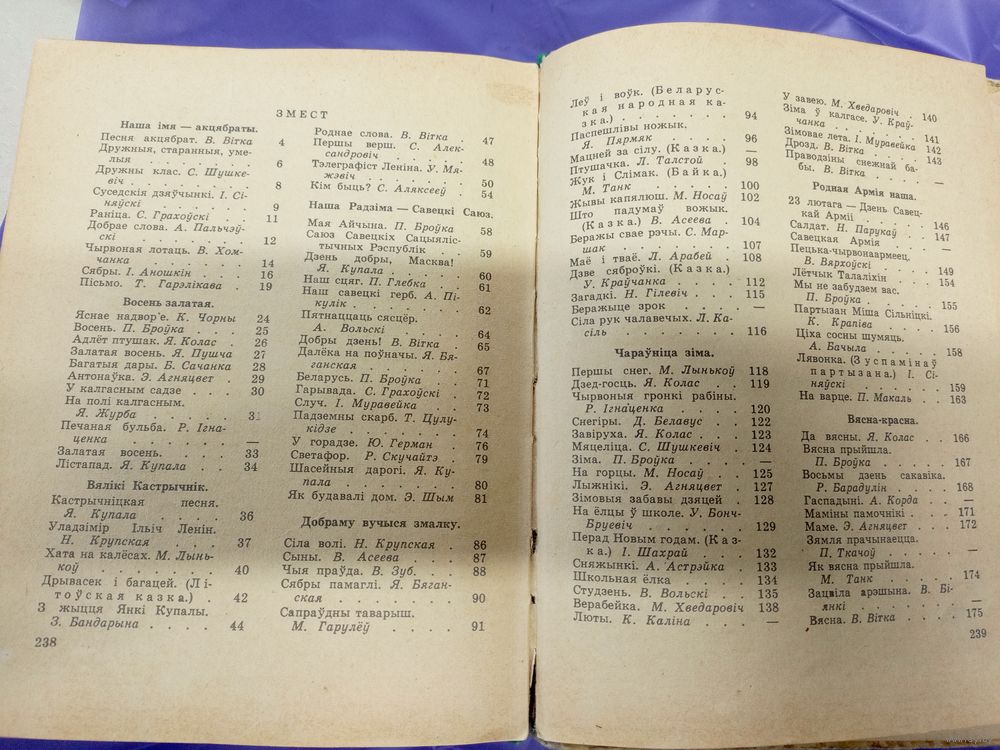 ЗМЕСТ
Наша імя — акцябраты.
Песня акцябрат. В. Вітка . 4
Дружныя, старанныя, уме-
лыя . . . . . . . 6
Дружны клас. С. Шушке-
віч . . . . . . . 8
Суседскія дзяўчынкі. І. Сі-
няўскі . . . . . . 9
Раніца. С. Грахоўскі . . 11
Добрае слова. А. Пальчэў-
скі . . . . . . . 12
Чырвоная лотаць. В. Хом-
чанка . . . . . . 14
Сябры. І. Аношкін . . . 16
Пісьмо. Т. Гарэлікава . . 19
Восень залатая.
Яснае надвор'е. К. Чорны 24
Восень. П. Броўка . . . 25
Адлёт птушак. Я. Колас . 26
Залатая восень. Я. Пушча 27
Багатыя дары. Б. Сачанка 28
Антонаўка. Э. Агняцвет . 29
У калгасным садзе . . . 30
На полі калгасным.
Я. Журба . . . . . 31
Печаная бульба. Р. Ігна-
ценка . . . . . . —
Залатая восень. . . . . 33
Лістапад. Я. Купала . . 34
Вялікі Кастрычнік.
Кастрычніцкая песня.
Я. Купала . . . . 36
Уладзімір Ільіч Ленін.
Н. Крупская . . . . 37
Хата на калёсах. М. Лынь-
коў . . . . . . . 40
Дрывасек і багацей. (Лі-
тоўская казка.) . 42
З жыцця Янкі Купалы.
З. Бандарына . . . . 44
238
Роднае слова. В. Вітка . 47
Першы верш. С. Алек-
сандровіч . . . . . 48
Тэлеграфіст Леніна. У. Мя-
жэвіч . . . . . . 50
Кім быць? С. Аляксееў . 54
Наша Радзіма — Савецкі Саюз.
Мая Айчына. П. Броўка 58
Саюз Савецкіх Сацыяліс-
тычных Рэспублік . . 59
Дзень добры, Масква!
Я. Купала . . . . . 60
Наш сцяг. П. Глебка . . 61
Наш савецкі герб. А. Пі-
кулік . . . . . . 62
Пятнаццаць сясцёр.
А. Вольскі . . . . 64
Добры дзень! В. Вітка . 65
Далёка на поўначы. Я. Бя-
ганская . . . . . 67
Беларусь. П. Броўка . . 71
Гарывада. С. Грахоўскі . 72
Случ. І. Муравейка . . 73
Падземны скарб. Т. Цулу-
кідзе . . . . . . 74
У горадзе. Ю. Герман . 76
Светафор. Р. Скучайтэ . 79
Шасейныя дарогі. Я. Ку-
пала . . . . . . 80
Як будавалі дом. Э. Шым 81
Добраму вучыся змалку.
Сіла волі. Н. Крупская . 86
Сыны. В. Асеева . . . 87
Чыя праўда. В. Зуб. . . 88
Сябры памаглі. Я. Бяган-
ская . . . . . . 90
Сапраўдны таварыш.
М. Гарулёў . . . . 91
Леў і воўк. (Беларус-
кая народная ка-
зка.) . . . . . . 94
Паспешлівы ножык.
Я. Пярмяк . . . . 96
Мацней за сілу. (Казка.) —
Птушачка. Л. Талстой . 98
Жук і Слімак. (Байка.)
М. Танк . . . . . 100
Жывы капялюш. М. Носаў 102
Што падумаў вожык.
(Казка.) В. Асеева . 104
Беражы свае рэчы. С. Мар-
шак . . . . . . . 107
Маё і тваё. Л. Арабей . 108
Дзве сяброўкі. (Казка.)
У. Краўчанка . . . 112
Загадкі. Н. Гілевіч . . 115
Беражыце зрок . . . . —
Сіла рук чалавечых. Л. Ка-
сіль . . . . . . . 116
Чараўніца зіма.
Першы снег. М. Лынькоў 118
Дзед-госць. Я. Колас . . 119
Чырвоныя гронкі рабіны.
Р. Ігнаценка . . . . 120
Снегіры. Д. Белавус . . 122
Завіруха. Я. Колас . . . 123
Мяцеліца. С. Шушкевіч . 124
Зіма. П. Броўка . . . . —
На горцы. М. Носаў . . 125
Лыжнікі. Э. Агняцвет . 127
Зімовыя забавы дзяцей . 128
На ёлцы ў школе. У. Бонч-
Бруевіч . . . . . . 129
Перад Новым годам. (Каз-
ка.) І. Шахрай . . . 132
Сняжынкі. А. Астрэйка . 133
Школьная ёлка . . . . 134
Студзень. В. Вольскі . . 135
Верабейка. М. Хведаровіч 138
Люты. К. Каліна . . . —
У завею. М. Хведаровіч . 140
Зіма ў калгасе. У. Краў-
чанка . . . . . . 141
Зімовае лета. І. Муравейка 142
Дрозд. В. Вітка . . . . 143
Праводзіны снежнай ба-
бы. В. Вітка . . . . —
Родная Армія наша.
23 лютага — Дзень Савец-
кай Арміі . . . . . 146
Салдат. Н. Парукаў . . 147
Савецкая Армія . . . . —
Пецька-чырвонаармеец.
В. Вярхоўскі . . . . 149
Лётчык Талаліхін . . . 154
Мы не забудзем вас.
П. Броўка . . . . . 155
Партызан Міша Сільніцкі.
К. Крапіва . . . . 156
Ціха сосны шумяць.
А. Бачыла . . . . . 158
Лявонка. (З успамінаў
партызана.) І. Сі-
няўскі . . . . . . 159
На варце. П. Макаль . . 163
Вясна-красна.
Да вясны. Я. Колас . . 166
Вясна прыйшла.
П. Броўка . . . . 167
Восьмы дзень сакавіка.
Р. Барадулін . . . 168
Гаспадыні. А. Корда . . —
Маміны памочнікі . . . 171
Маме. Э. Агняцвет . . . 172
Зямля прачынаецца.
П. Ткачоў . . . . —
Як вясна прыйшла.
М. Танк . . . . . 174
Зацвіла арэшына. В. Бі-
янкі . . . . . . —
Вясна. В. Вітка . . . . 175
239